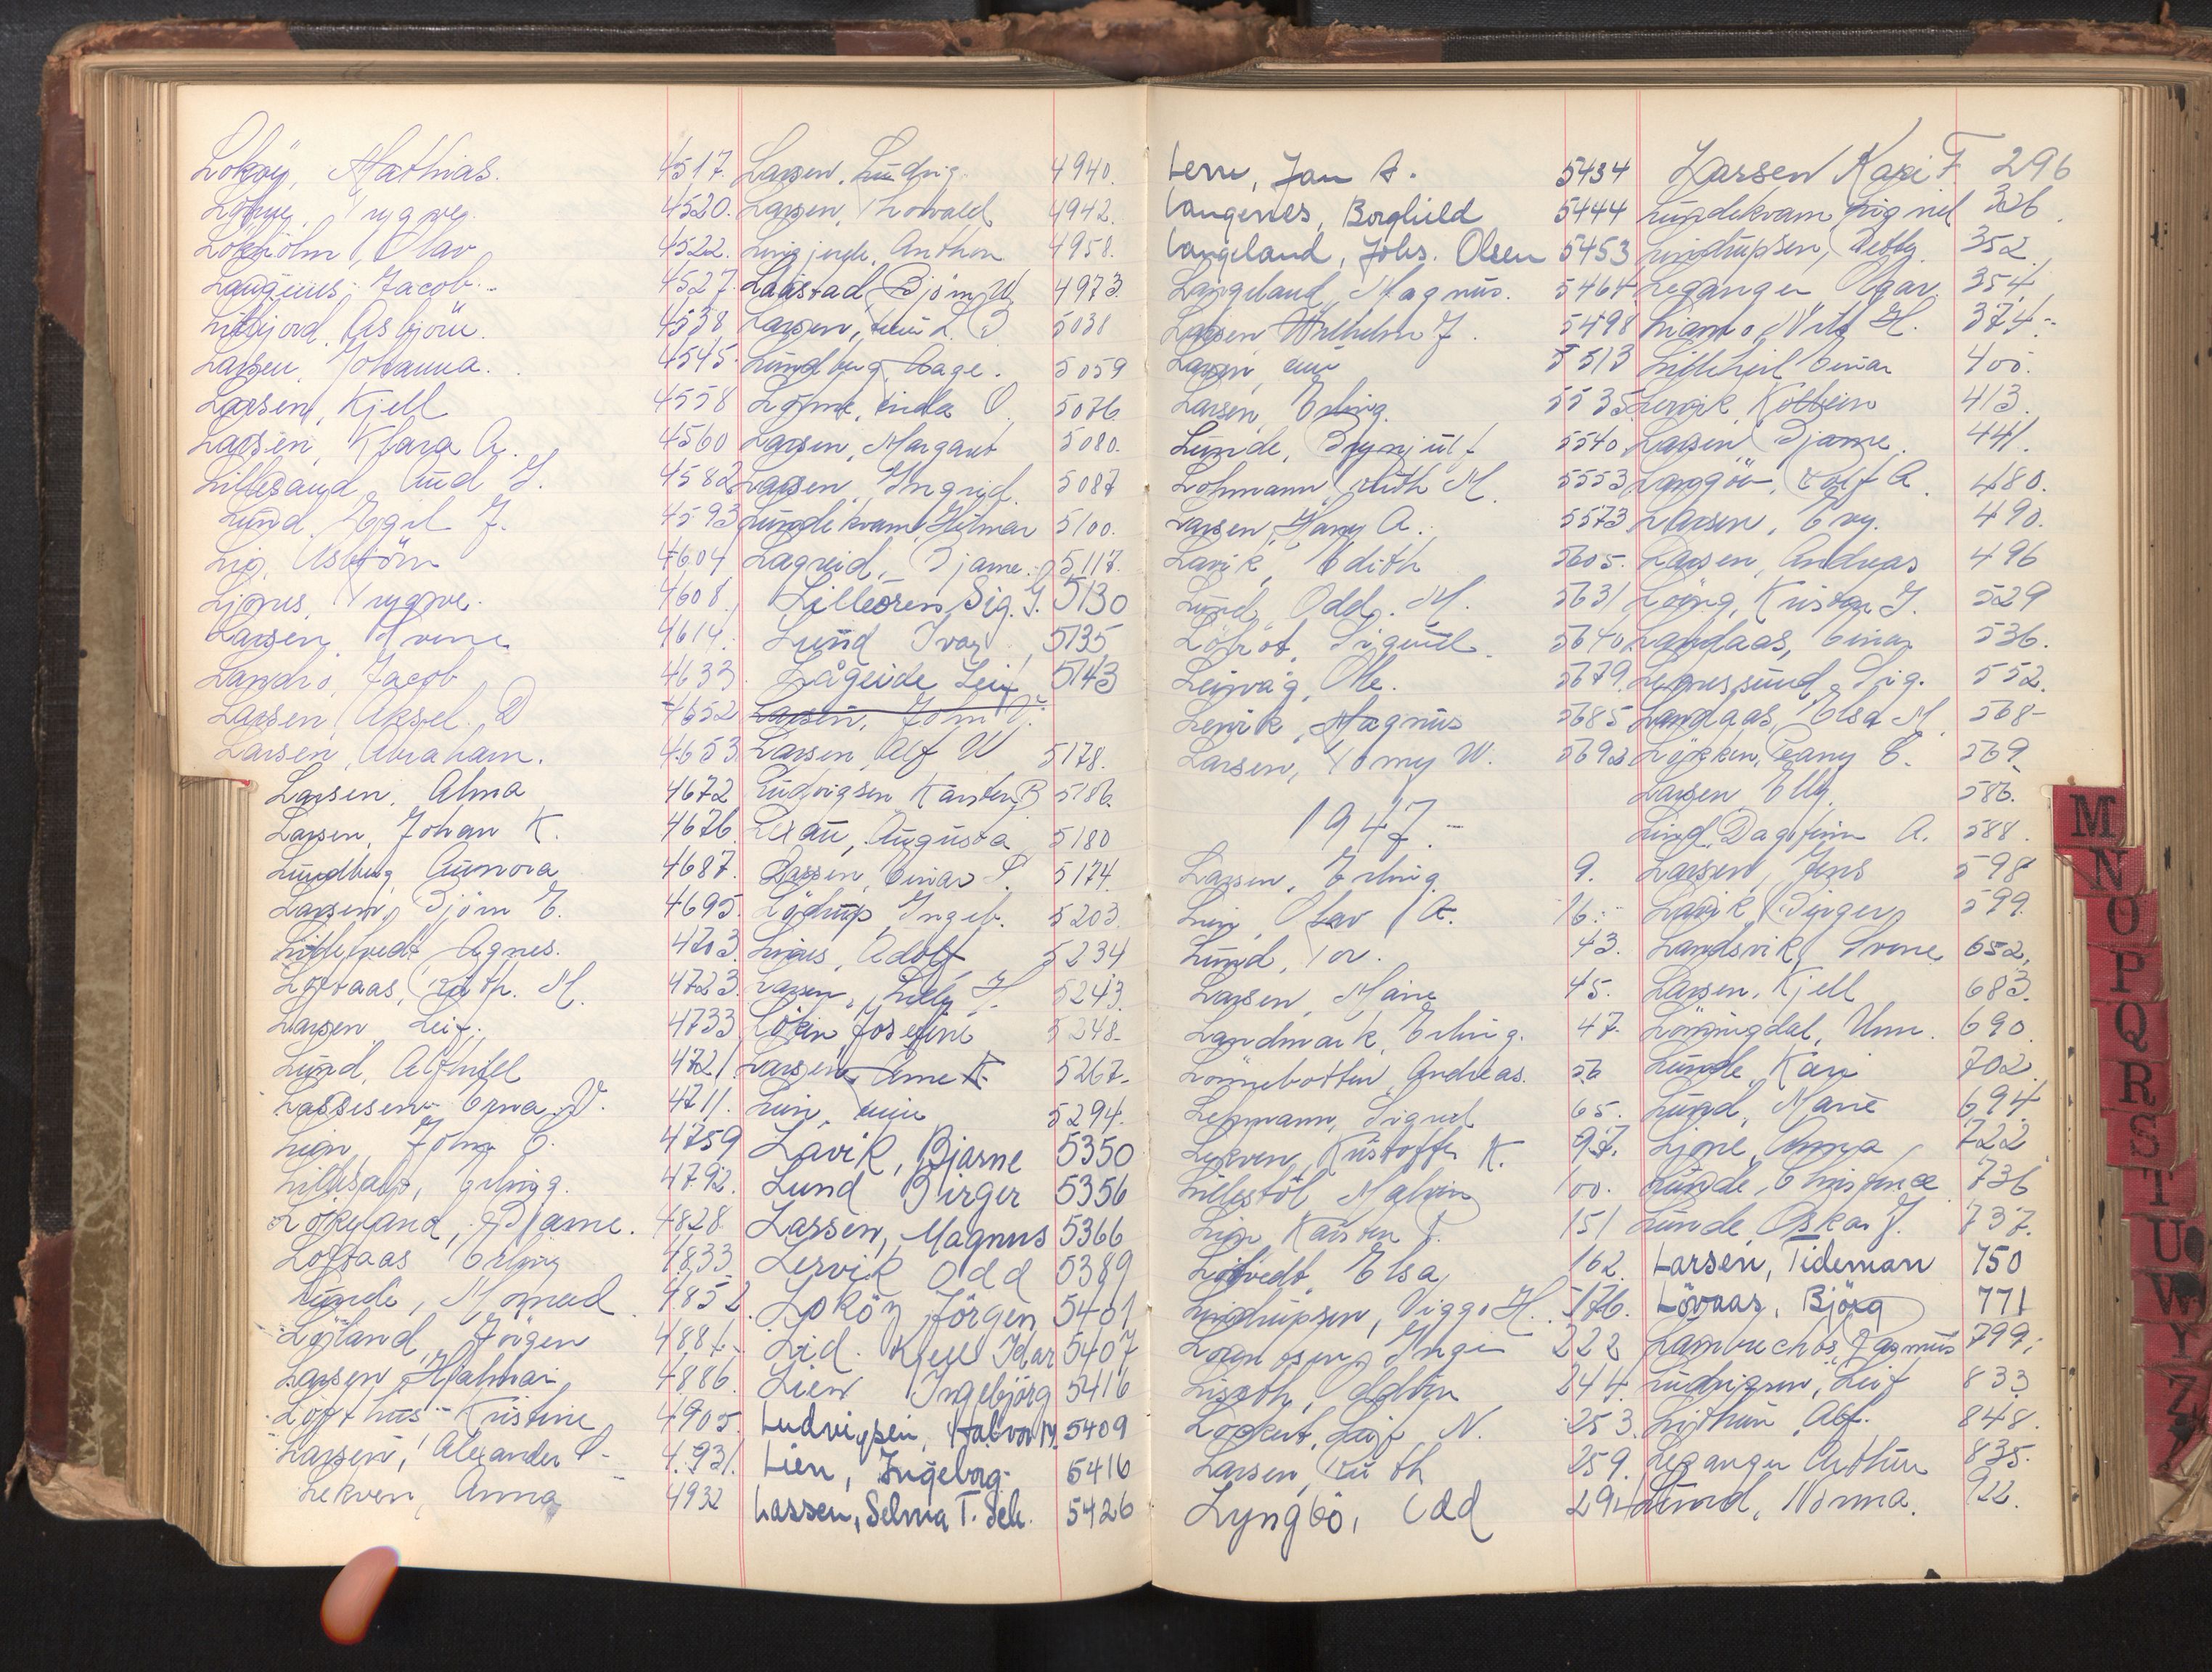 Lokøy, Mathias. 4517.
Trygve. 4520.
Olav 4522.
Jacob. 4527.
Asbjörn. 4538
Larsen, Johanna. 4545.
Larsen, Kjell 4558
Larsen, Klara A. 4560
Lillesand, Aud J. 4582
Lund, Egil J. 4593
Lie, Asbjörn 4604
Ljones, Trygve. 4608.
Larsen, 4614.
Landro, Jacob 4633.
Larsen, Aksel. D 4652
Larsen, Abraham. 4653
Larsen, Alma 4672
Larsen, Johan K. 4676
Lundberg, Aunora 4687.
Larsen, Björn E. 4695.
Agnes. 4703.
Loftaas, M. 4723.
Larsen, Leif. 4733
Lund, Alfhild 4721
Erna V. 4711.
Lien, John E. 4759
Lillesalt, Erling. 4792.
Lokeland, Bjarne. 4828.
Loftaas Erling 4833
Lunde, 4852
Jörgen 4881.
Larsen, Hjalmar 4886.
Lofthus Kristine 4905
Larsen, Alexander 4931.
Lekven, Anna 4932
Larsen, Ludvig. 4940.
Larsen, Thorvald 4942.
Anthon 4958.
Laastad, Björn W 4973.
Larsen, 5038
Lundberg, Aage. 5059
Lönne, 5076
Larsen, Margaret 5080.
Larsen, Ingrid. 5087
Lundekvam, Hilmar 5100.
Lagreid, Bjarne. 5117.
Lilleören, Sig. G. 5130
Lund Ivar 5135
Lågeide Leif 5143
Larsen, John
Larsen, Alf W 5178.
Ludvigsen, Karsten B 5186.
Lexau, Augusta 5180
Larsen, Einar 5174.
Lödrup, Ingeb. 5203.
Adolf 5234
Larsen, Lilly H. 5243.
Josefine 5248.
Larsen, Arne K. 5267.
Lien, 5294.
Lavik, Bjarne 5350
Lund Birger 5356
Larsen, Magnus 5366
Lervik Odd 5389
Lokøy Jörgen 5401
Lid. Kjell Idar 5407
Lien Ingebjörg 5416
Ludvigsen, Halvor M. 5409
Lien, Ingeborg. 5416
Lassen, Selma T. Sch. 5426
Jan A. 5434
Langenes, Borghild 5444
Langeland, Johs. Olsen 5453
Langeland, Magnus. 5464
Larsen Wilhelm J. 5498
Larsen, 5513
Larsen, Erling. 5535
Lunde, Brynjulf 5540
Lohmann, Ruth M. 5553
Larsen, Harry A. 5573
Lavik, Edith 5605.
Lund, Odd. M. 5631
Sigurd 5640
Leirvåg, Ole. 5679
Magnus 5685
Larsen, Tomy W. 5692
1947.
Larsen, Erling 9.
Lien, Olav A. 16.
Lund, Tor. 43.
Larsen, Marie 45.
Landmark, Erling. 47.
Lönnebotten, Andreas. 56
Lehmann, Sigurd 65.
Lekven, Kristoffer K. 97.
Lillestöl Malvin 100.
Lien Karsten 151
Elsa 162.
Lindrupsen, Viggo H. 176.
Inger 222
244.
Leif N. 253
Larsen, Ruth 259.
Lyngbö, Odd 294
Larsen Kari F 296
Lundekvam, Sigrid 326.
Lindrupsen, Betty. 352.
Leganger 354
Nils H. 374.
Einar 400.
Lervik, Kolbein 413.
Larsen Bjarne 441.
Rolf A. 480.
Larsen, 490.
Larsen, Andreas 496
Kristen J. 529
Landaas, Einar 536.
Sig. 552.
Landaas, Elsa M. 568
Løkken, Fanny E. 569
Larsen Elly. 586.
Lind, Dagfinn A. 588.
Larsen, Jens 598
Lavik, Birger 599.
Landsvik, 652.
Larsen, Kjell 683.
Lönningdal, Unni. 690.
Lunde, Kari 702
Lund, Marie 694
Ljone, Anna 722
Lunde, 736
Lunde, Oskar J. 737.
Larsen, Tideman 750
Lövaas, Björg 771
Lambrechts, Rasmus 799.
Ludvigsen, Leif 833
Alf. 848.
Leganger Arthur 835.
Lund, Norma. 922.
M
N
O
P
Q
R
S
T
U
W
Y
Z